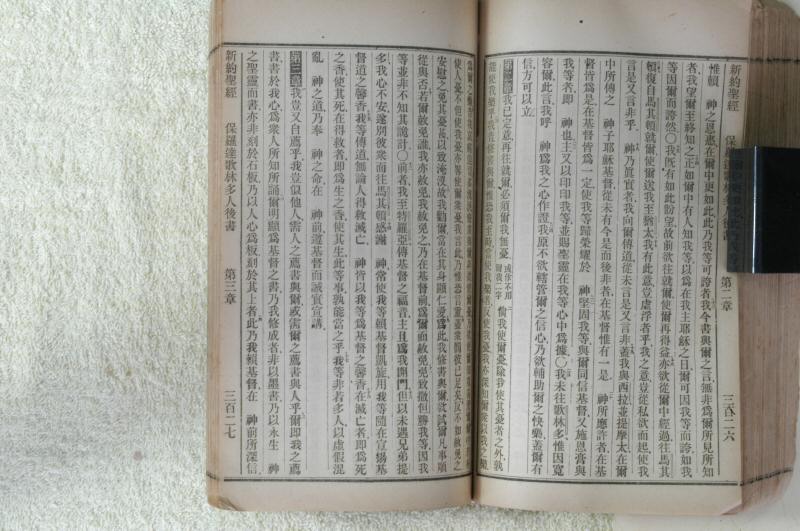 新約聖經　保羅達歌林多人後書　第二章　三百二十六
惟賴　神之恩惠在爾中更如此此乃我等可誇者我今書與爾之言無非爲爾所見所知
者我望爾至終知之正如爾中有人知我等以爲在我主耶穌之日爾可因我等而誇如我
等因爾而誇然〇我旣有如此盼望故前欲往就爾使爾再得益亦欲從爾中經過往馬其
頓復自馬其頓就爾使爾送我至猶太我有此意豈虛浮者乎我之意豈從私欲而起使我
言是又言非乎　神乃眞實者我向爾傳道從未言是又言非蓋我與西拉並提摩太在爾
中所傳之　神子耶穌基督從未有今是而後非者在基督惟有一是　神所應許者在基
督皆爲是在基督皆爲一定使我等歸榮耀於　神堅固我等與爾同信基督又施恩膏與
我等者卽　神也主又以印印我等並賜聖靈在我等心中爲據〇我未往歌林多惟因寬
容爾此言我呼　神爲我之心作證我原不欲轄管爾之信心乃欲輔助爾之快樂蓋爾有
信方可以立
第二章我已定意再往就爾必須爾我無憂或作不用爾我二字倘我使爾憂除我使其憂者之外孰
能使我樂乎我
使人憂不但使我憂亦
安慰之免其憂甚以致淹沒故我勸爾當在其身顯仁愛爲此我修書與爾欲試爾凡事順
從與否若爾赦免誰我亦赦免我赦免之乃在基督前爲爾而赦免免致撒但勝我等因我
等並非不知其詭計〇前者我至特羅亞傳基督之福音主且爲我開門但以未遇兄弟提
多我心不安遂別彼衆而往馬其頓感謝　神常使我等賴基督凱旋用我等隨在宣揚基
督道之馨香我等傳道無論人得救滅亡　神皆以我等爲基督之馨香在滅亡者卽爲死
之香使其死在得救者卽爲生之香使其生此等事孰能當之乎我等非若多人以虛假混
亂　神之道乃奉　神之命在　神前遵基督而誠實宣講
第三章我豈又自薦乎我豈似他人需人之薦書與爾或需爾之薦書與人乎爾卽我之薦
書書於我心爲衆人所知所誦爾明顯爲基督之書乃我修成者非以墨書乃以永生　神
之聖靈而書亦非刻於石板乃以人心爲板刻於其上者此乃我賴基督在　神前所深信
新約聖經　保羅達歌林多人後書　第三章　三百二十七